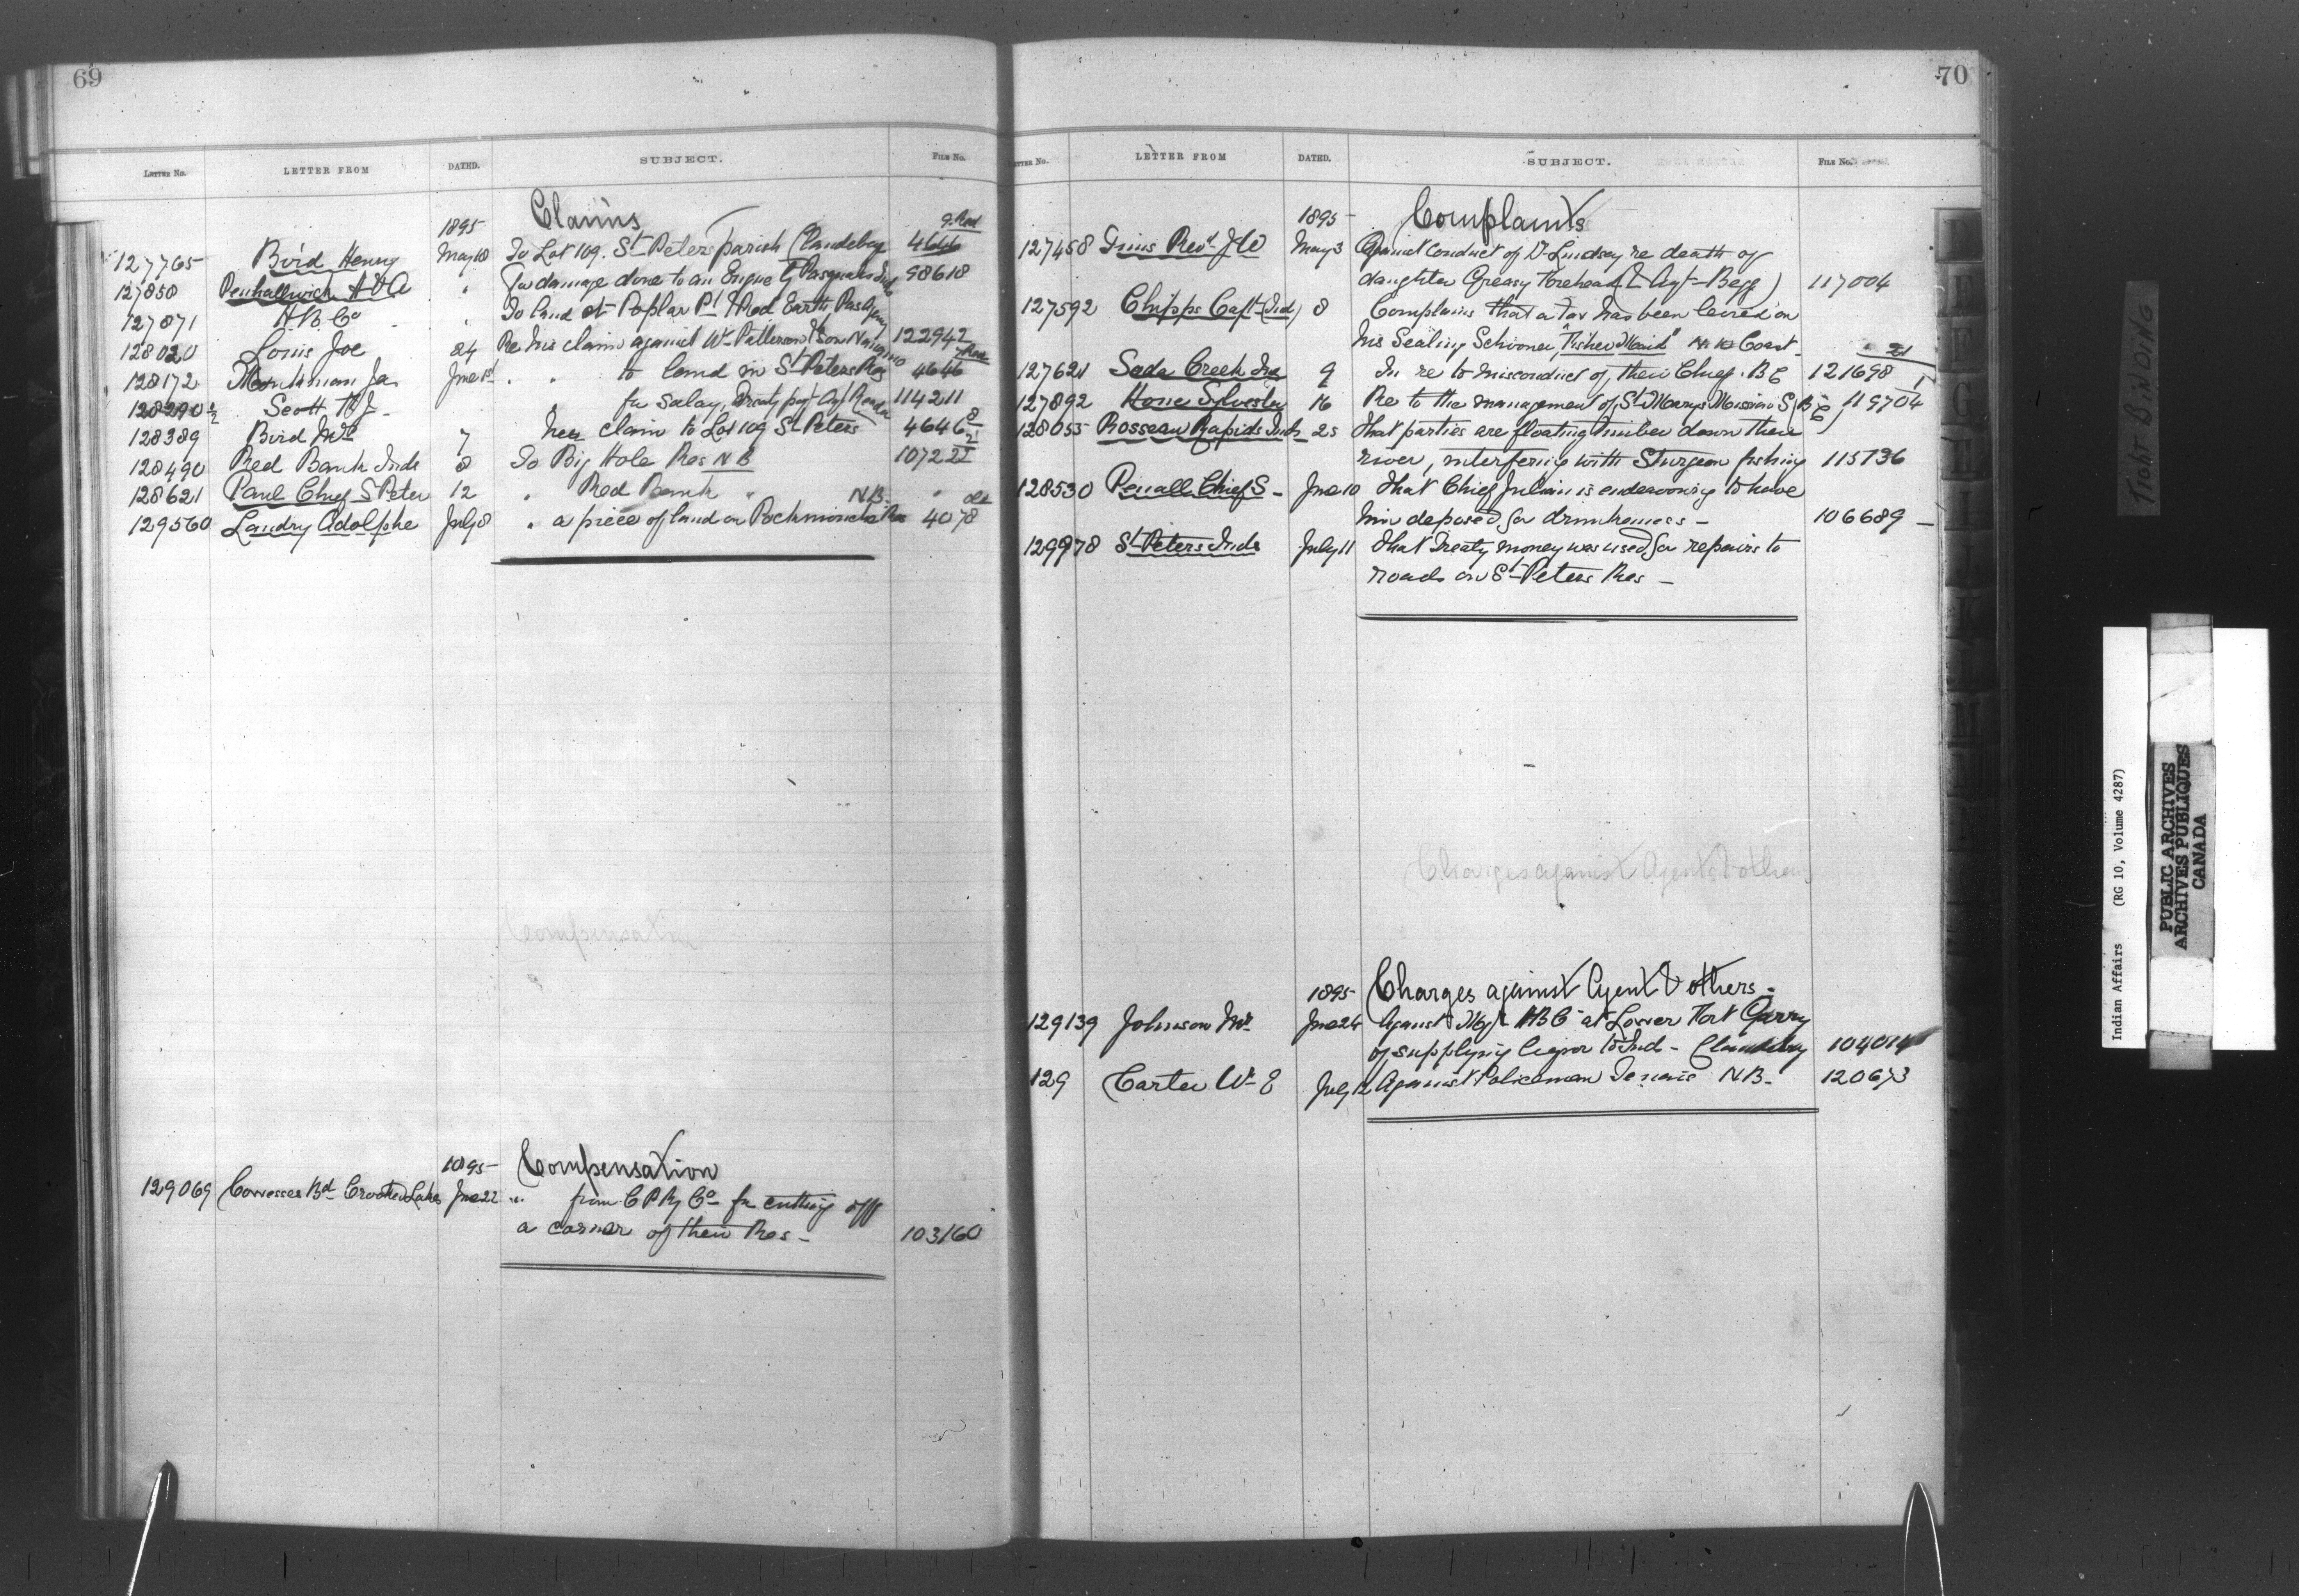 69
LETTER No. LETTER FROM DATED. SUBJECT. FILE No.
1895 Claims
127765 Bird Henry May 18 To Lot 109. St Peters parish (Clandeboy 4646
127850 Penhallwick A For damage done to an Engine by Pasquahs Inds 98618
127871 H.B. Co To land at Poplar Pt & Red Earth Pas Agency
128020 Louis Joe 24 Re his claim against Wm Patterson & Son Nanaimo 122942
128172 Monkman Ja June 1st " " to land in St Peters Res 4646
128290½ Scott " for Salary, Treaty pay 114211
128389 Bird Mrs 7 her claim to Lot 109 St Peters 4646
128490 Red Bank Inds 8 To Big Hole Res N B 10722
128621 Paul Chief S Peter 12 " Red Bank " N.B. "
129560 Landry Adolphe July 8 " a piece of land on Res 4078
Compensation
1895 Compensation
129069 Bd Crooked Lakes June 22 " from C P Ry Co for cutting off
a corner of their Res - 103160
70
LETTER No. LETTER FROM DATED. SUBJECT. FILE No.
1895 Complaints
127458 Tims Revd J W May 3 Against conduct of Dr Lindsay re death of
daughter Greasy Forehead ( Agt Begg ) 117004
127592 Chipps Capt (Ind) 8 Complains that a Tax has been levied on
his Sealing Schooner, "Fisher Maid" Coast
127621 Soda Creek Inds 9 In re to misconduct of their Chief. B C 121698
127892 Sylvester 16 Re to the management of St Marys Mission S, B C 119704
128055 Rosseau Rapids Inds 25 That parties are floating timber down their
river, interfering with Sturgeon fishing 115736
128530 Penall Chief S - June 10 That Chief Julian is endeavoring to have
him deposed for drunkenness -
106689 -
129978 St Peters Inds July 11 That Treaty money was used for repairs to
roads on St Peters Res -
Charges against Agents & others
1895 Charges against Agent & others -
129139 Johnson Mr June 24 Against Mgr H B C at Lower Fort Garry
of supplying liquor to Ind - Clandeboy 104014
129 Carter Wm E July 12 Against Policeman N.B. - 120673
TIGHT BINDING
Indian Affairs (RG 10, Volume 4287)
PUBLIC ARCHIVES
ARCHIVES PUBLIQUES
CANADA